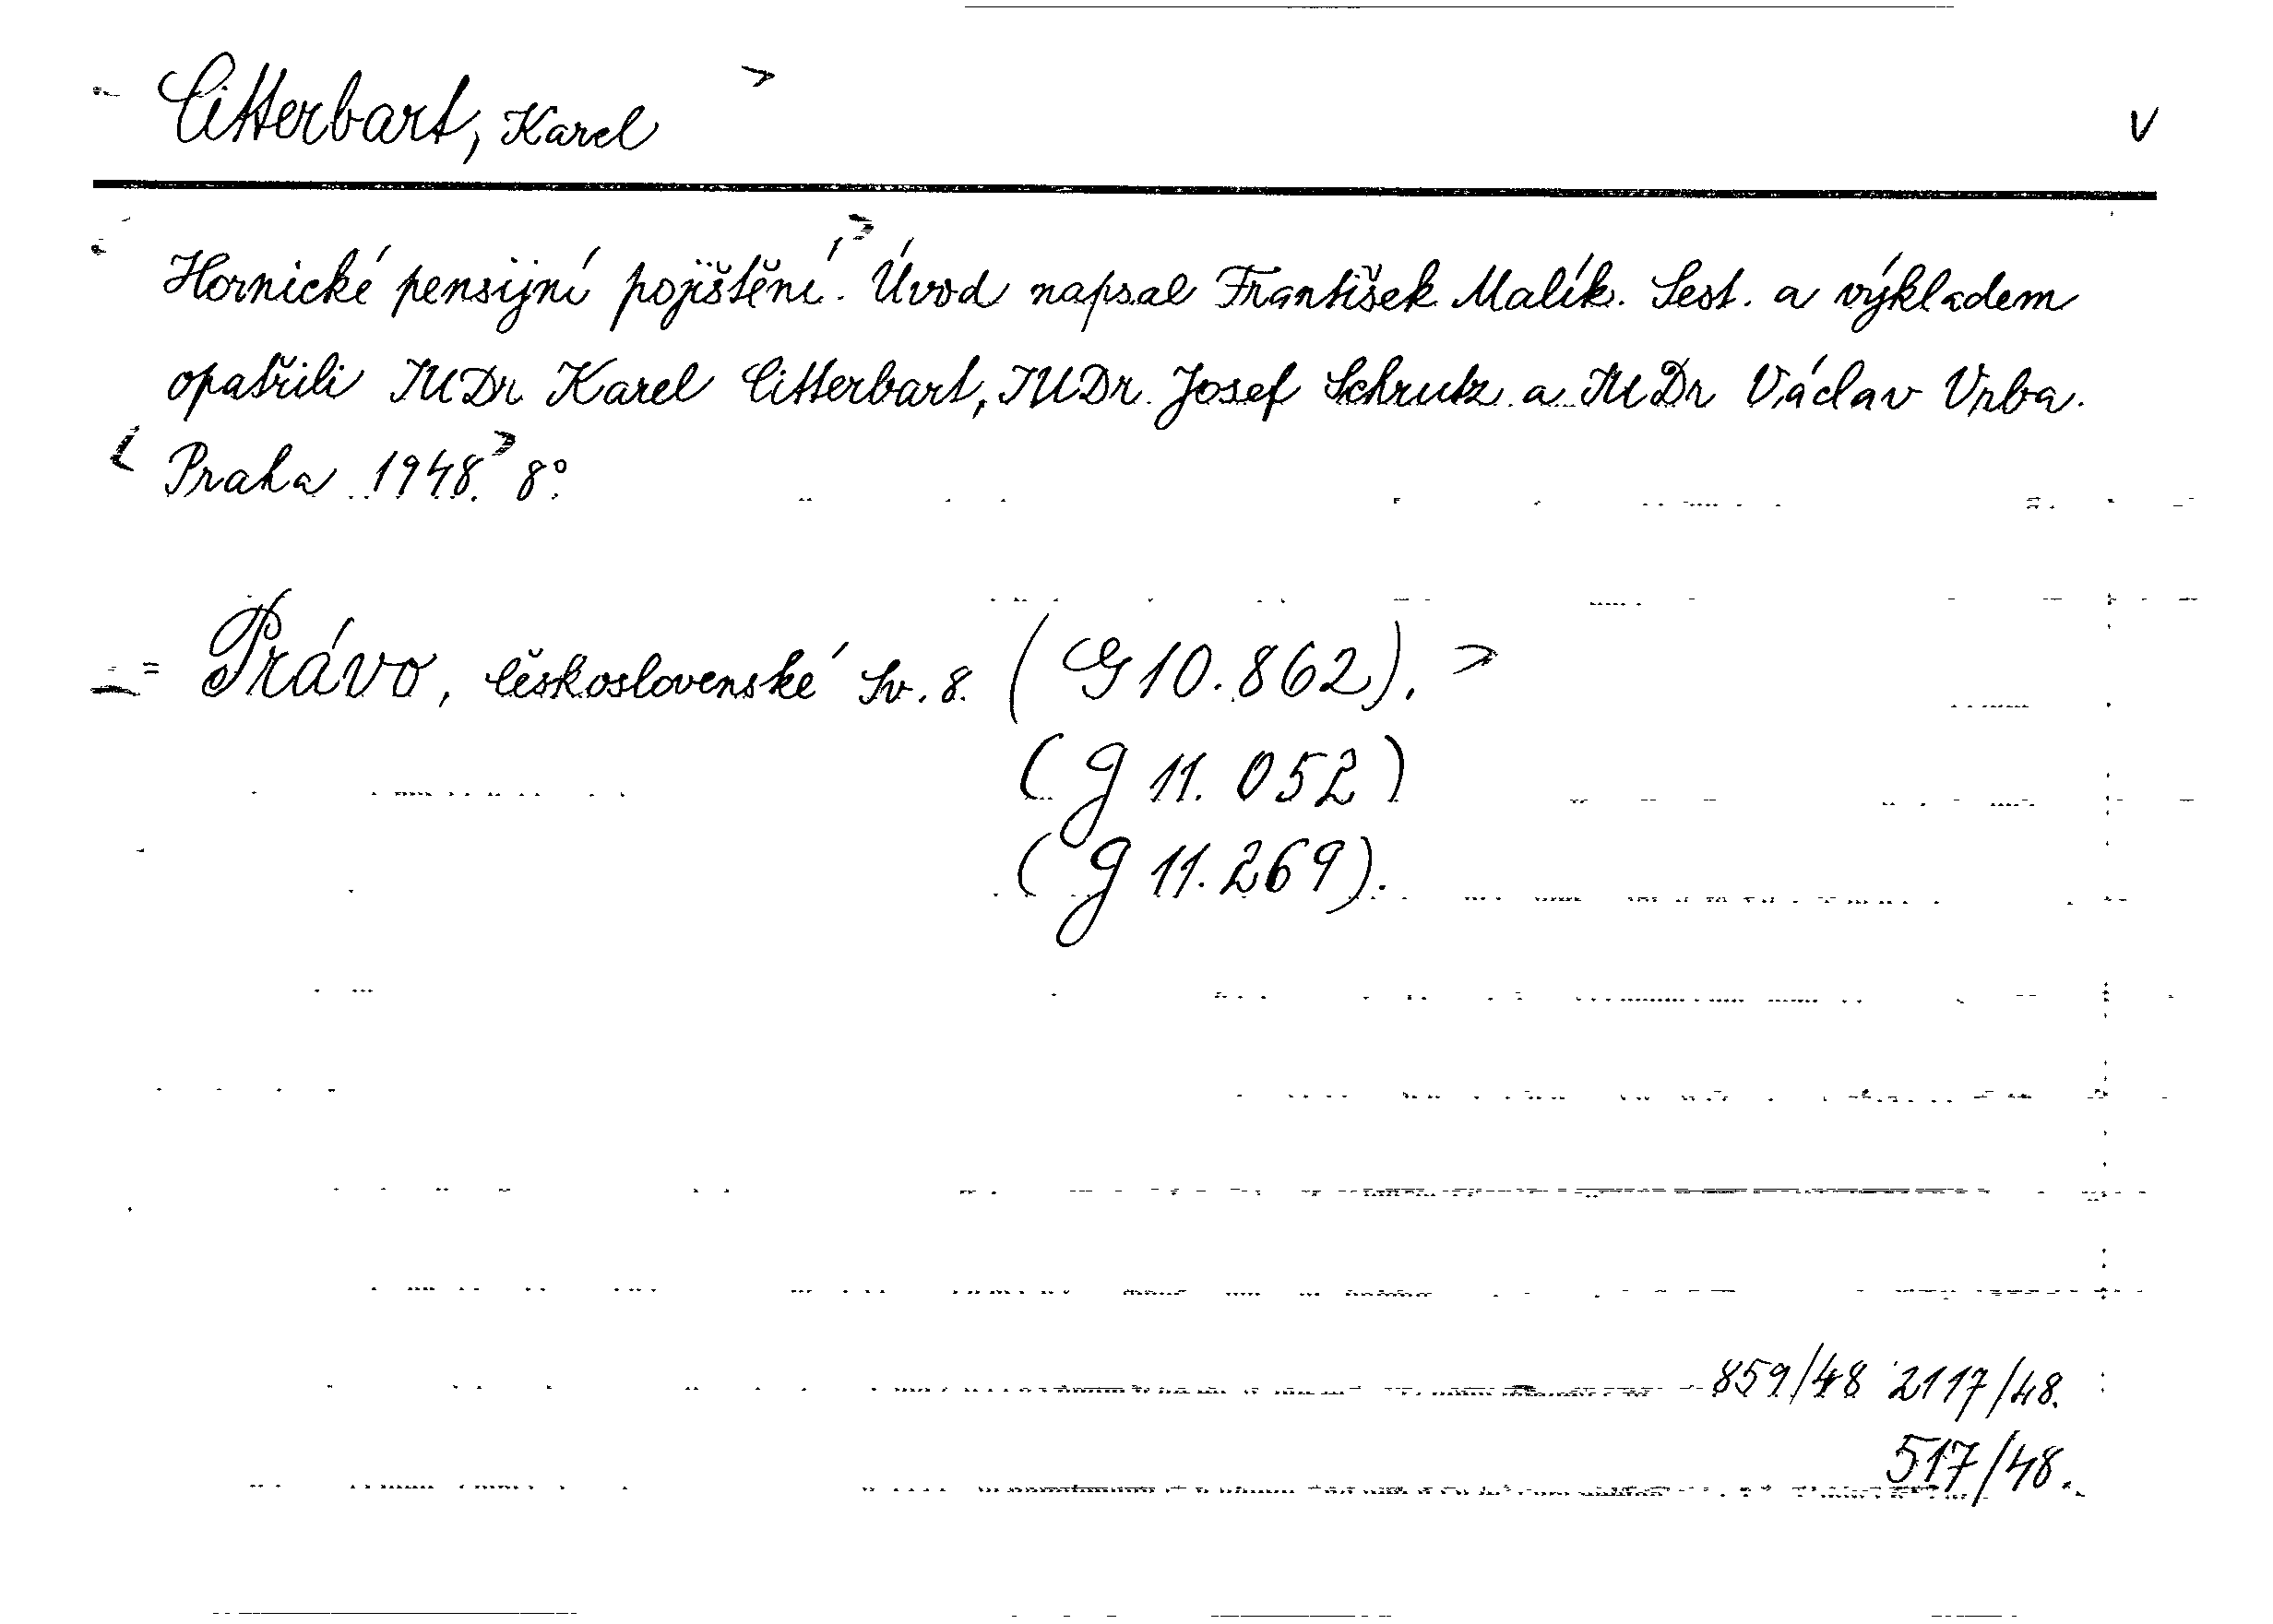 Citterbart, Karel
V
Hornické pensijní pojištění. Úvod napsal František Malík. Sest. a výkladem
opatřili JUDr Karel Citterbart, JUDr. Josef Schrutz a JUDr Václav Vrba.
Praha 1948. 8°.
= Právo, československé Sv. 8. (G 10.862).
(G 11.052)
(G 11.269).
859/48 2117/48.
517/48.